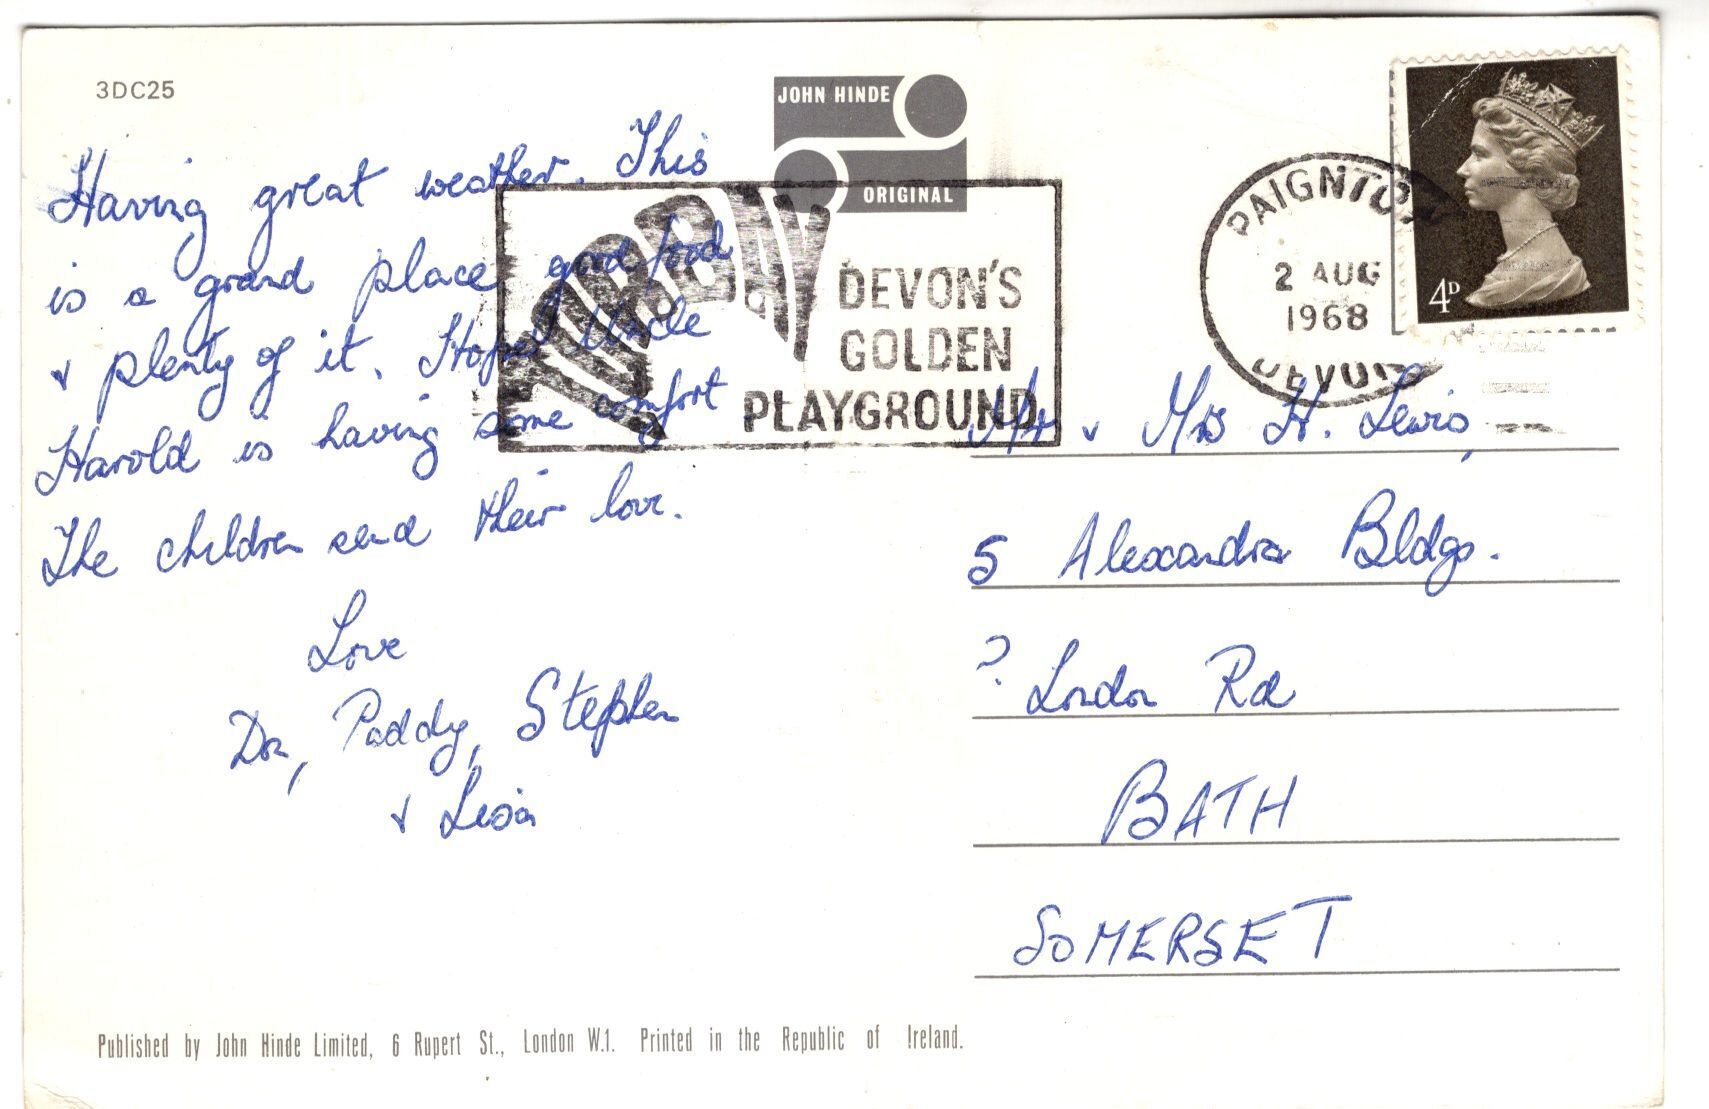 3DC25
JOHN HINDE
ORIGINAL
Having great weather. This
is a grand place good food
& plenty of it. Hope Uncle
Harold is having some comfort
The children send their love.
Love
Don, Paddy, Stephen
& Lisa
TORBAY
DEVON'S
GOLDEN
PLAYGROUND
PAIGNTON
2 AUG
1968
DEVON
4D
Mr & Mrs H. Lewis,
5 Alexandra Bldgs.
? London Rd
BATH
SOMERSET
Published by John Hinde Limited, 6 Rupert St., London W.1. Printed in the Republic of Ireland.